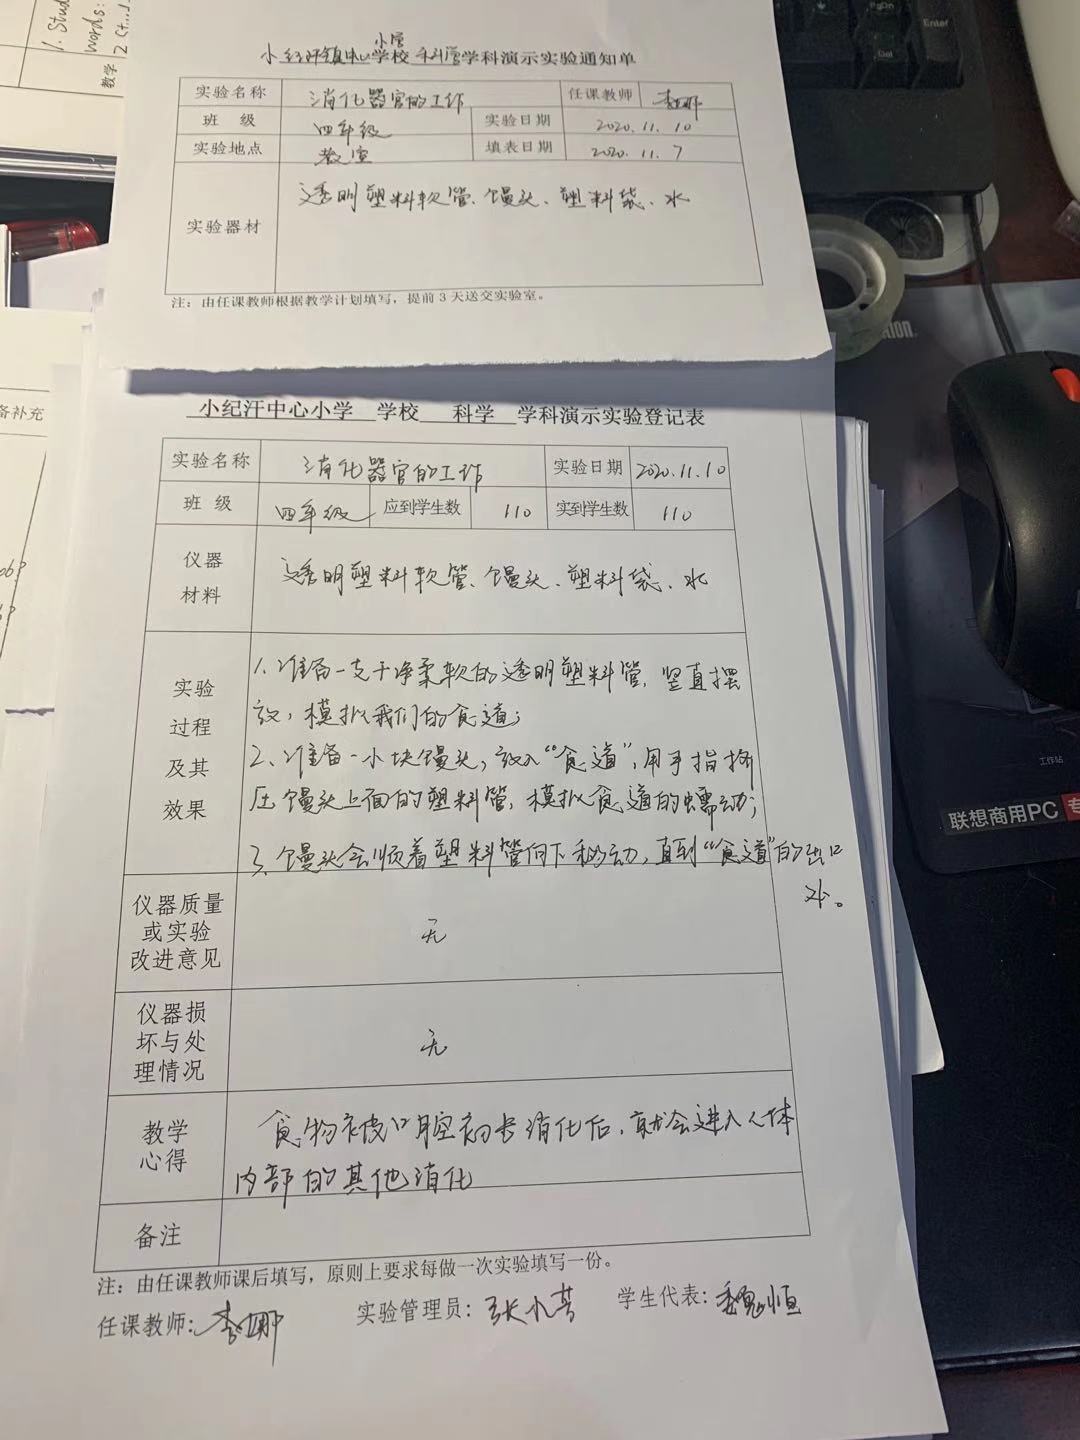 小学
小纪汗镇中心学校 科学学科演示实验通知单
实验名称 消化器官的工作 任课教师 李娜
班 级 四年级 实验日期 2020.11.10
实验地点 教室 填表日期 2020.11.7
实验器材 透明塑料软管、馒头、塑料袋、水
注：由任课教师根据教学计划填写，提前3天送交实验室。
小纪汗中心小学 学校 科学 学科演示实验登记表
实验名称 消化器官的工作 实验日期 2020.11.10
班 级 四年级 应到学生数 110 实到学生数 110
仪器
材料
透明塑料软管、馒头、塑料袋、水
实验
过程
及其
效果
1、准备一支干净柔软的透明塑料管，竖直摆
放，模拟我们的食道；
2、准备一小块馒头，放入“食道”，用手指挤
压馒头上面的塑料管，模拟食道的蠕动；
3、馒头会顺着塑料管向下移动，直到“食道”的出口
外。
仪器质量
或实验
改进意见
无
仪器损
坏与处
理情况
无
教学
心得
食物被口腔初步消化后，就会进入人体
内部的其他消化
备注
注：由任课教师课后填写，原则上要求每做一次实验填写一份。
任课教师：李娜 实验管理员：张小芳 学生代表：魏恒
1. Stud
words:
教学
备补充
PgDn
Enter
Del
工作站
联想商用PC 专